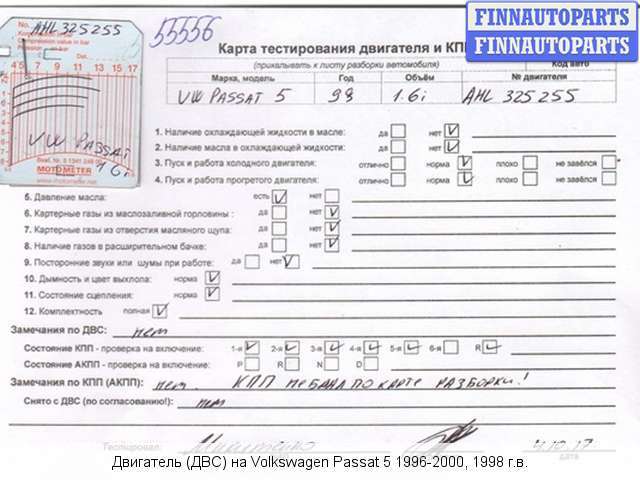 FINNAUTOPARTS
FINNAUTOPARTS
No. AHL 325255
55556
Карта тестирования двигателя и КПП
(прикалывать к листу разборки автомобиля)
Код авто
Марка, модель Год Объём № двигателя
VW PASSAT 5 98 1.6i AHL 325255
4 5 7 9 11 13 15 17
VW PASSAT
1.6i
MOTOMETER
1. Наличие охлаждающей жидкости в масле: да нет
2. Наличие масла в охлаждающей жидкости: да нет
3. Пуск и работа холодного двигателя: отлично норма плохо не завёлся
4. Пуск и работа прогретого двигателя: отлично норма плохо не завёлся
5. Давление масла: есть нет
6. Картерные газы из маслозаливной горловины : да нет
7. Картерные газы из отверстия масляного щупа: да нет
8. Наличие газов в расширительном бачке: да нет
9. Посторонние звуки или шумы при работе: да нет
10. Дымность и цвет выхлопа: норма
11. Состояние сцепления: норма
12. Комплектность полная
Замечания по ДВС: нет
Состояние КПП - проверка на включение: 1-я 2-я 3-я 4-я 5-я 6-я R
Состояние АКПП - проверка на включение: P R N D
Замечания по КПП (АКПП): нет. КПП не бала по карте разборки!
Снято с ДВС (по согласованию!): нет
Тестировал: 4.10.17
дата
Двигатель (ДВС) на Volkswagen Passat 5 1996-2000, 1998 г.в.